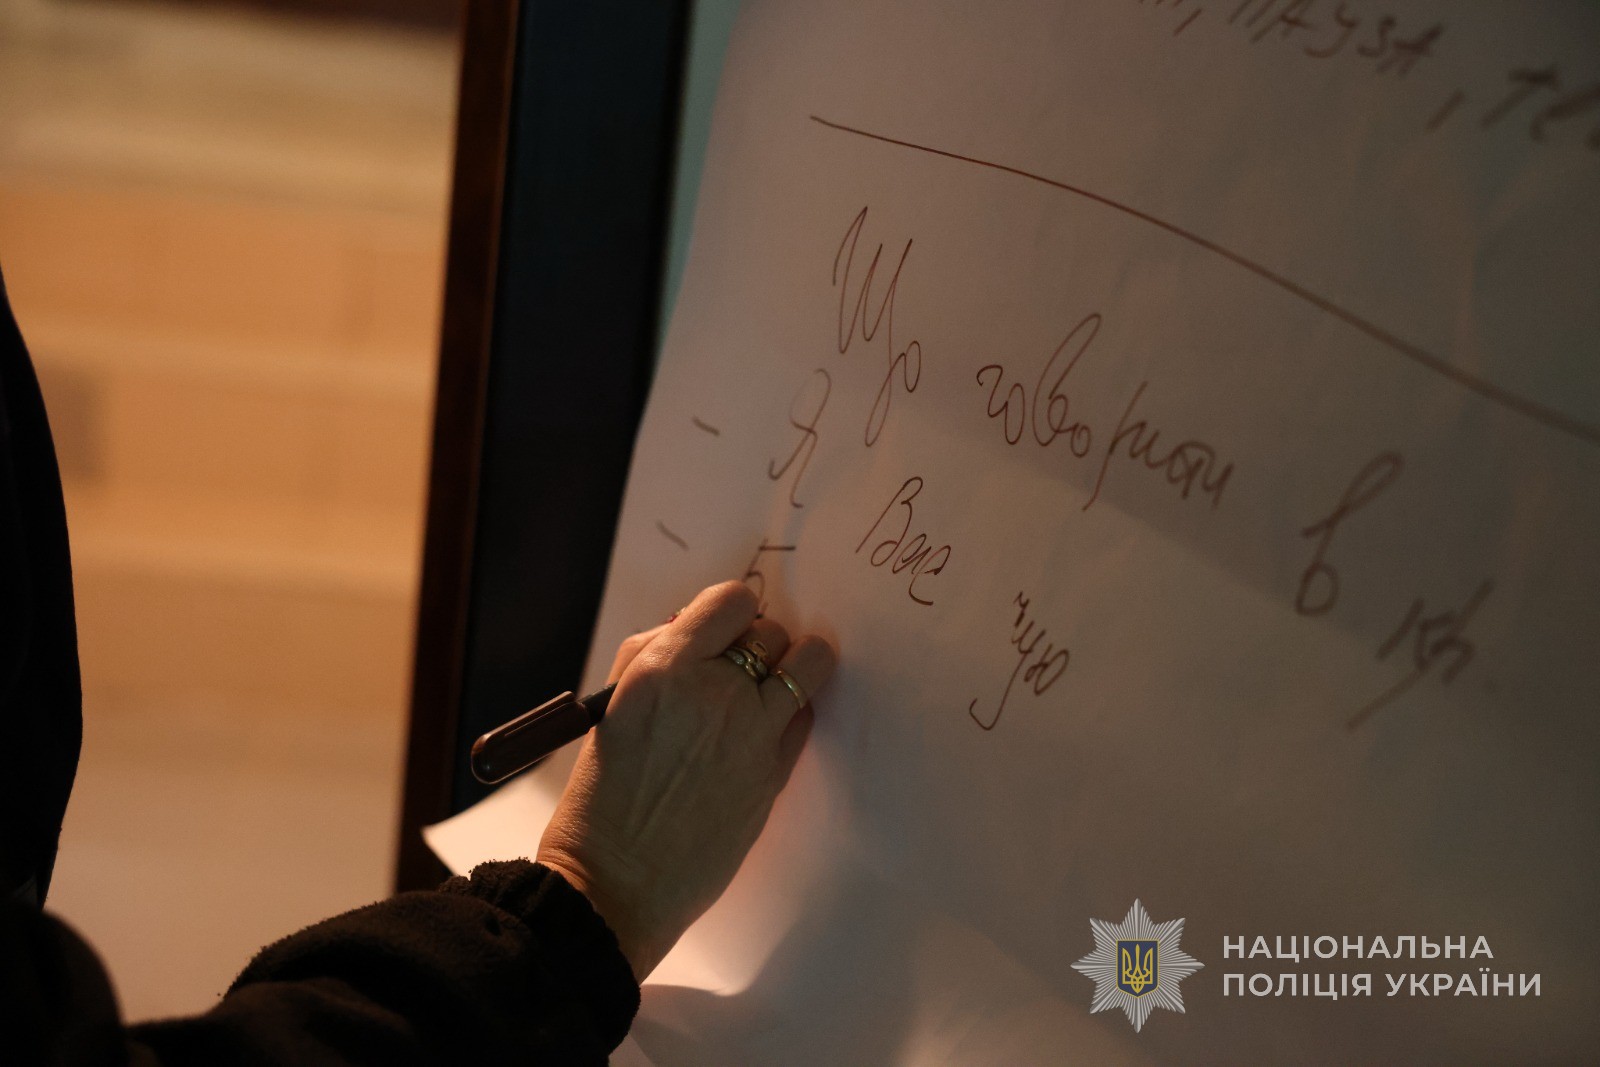 , ПАУЗА, те
Що говорити в кр.
- Я Вас чую
- Б
НАЦІОНАЛЬНА
ПОЛІЦІЯ УКРАЇНИ